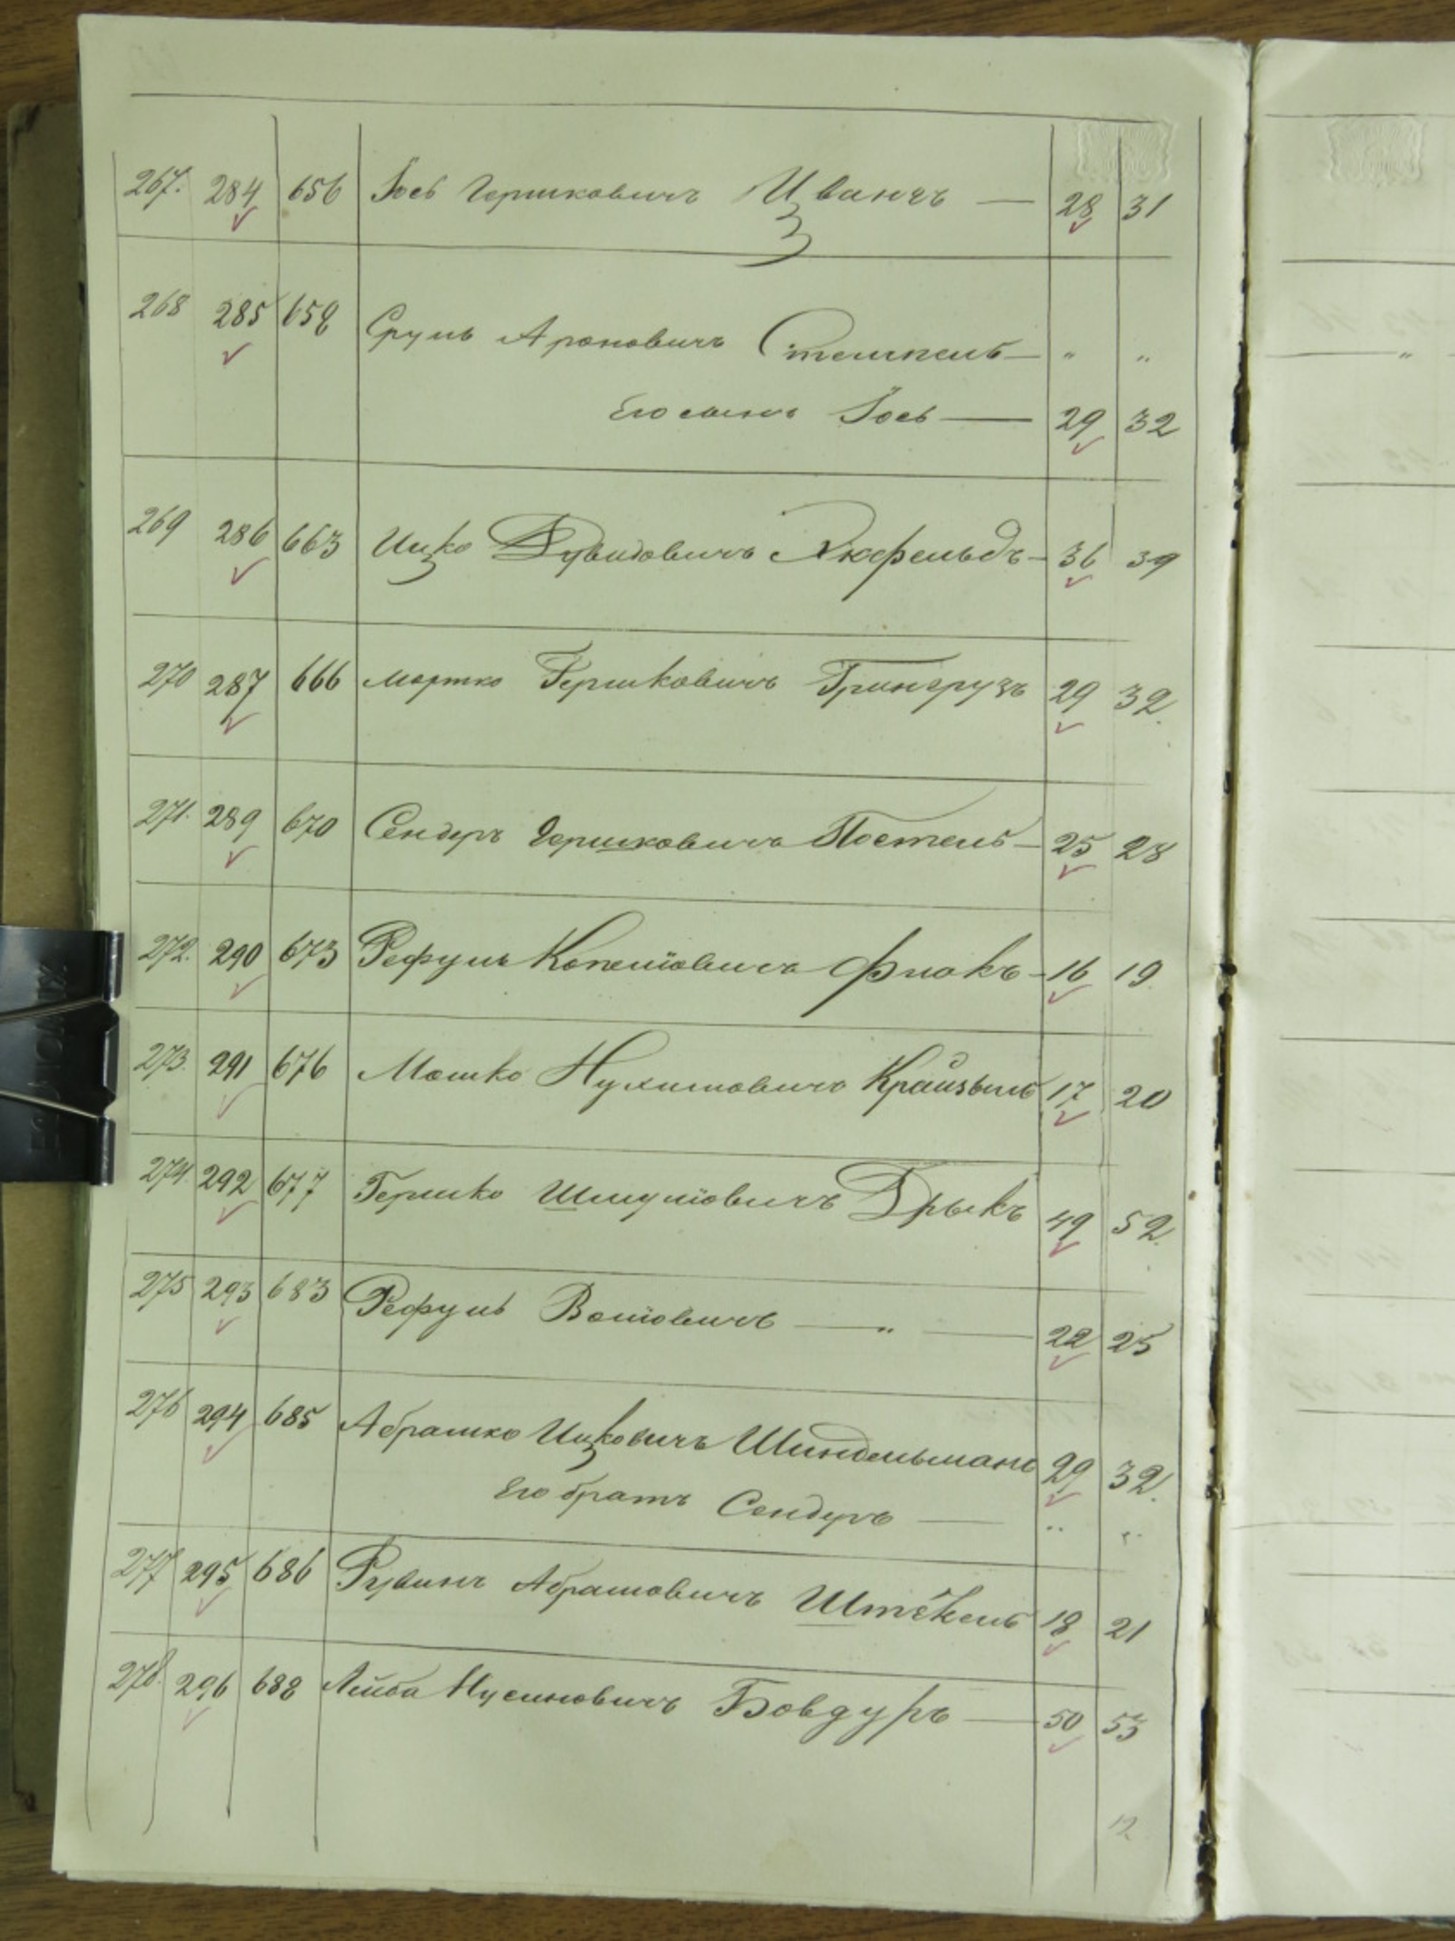 267. 284 656 Іось Гершковичъ Цванчъ — 28 31
268 285 658 Сруль Ароновичъ Стемпель — " "
Его сынъ Іось — 29 32
269 286 663 Ицко Дувидовичъ Люфельдъ — 36 39
270 287 666 Мортко Гершковичъ Гринрузъ 29 32.
271. 289 670 Сендеръ Гершковичъ Постель — 25 28
272. 290 673 Рефуль Копелiовичъ Флакъ — 16 19
273. 291 676 Мошко Нухимовичъ Крайзыль 17 20
274. 292 677 Гершко Шмулiовичъ Дрыкъ 49 52.
275 293 683 Рефуль Волiовичъ — " — 22 25
276 294 685 Абрамко Ицковичъ Шиндельманъ 29 32.
Его братъ Сендеръ — " "
277 295 686 Рувинъ Абрамовичъ Штекель 18 21
278. 296 688 Лейба Нусиновичъ Бовдуръ — 50 53
12